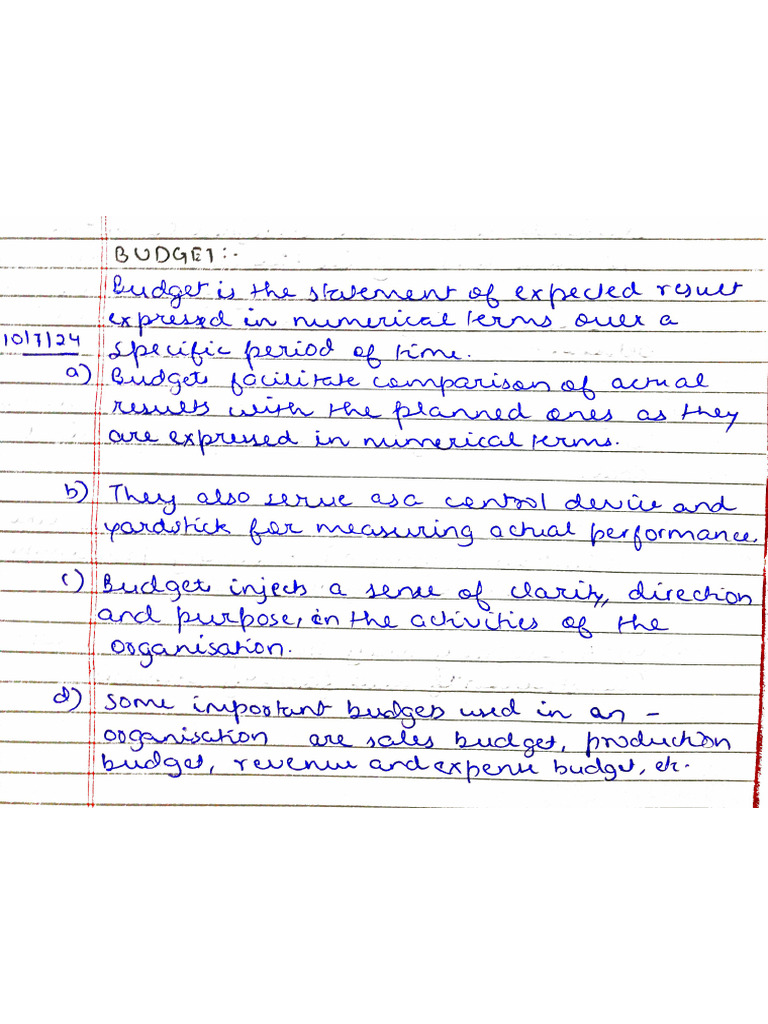 BUDGET:-
Budget is the statement of expected result
expressed in numerical terms over a
10/7/24 specific period of time.
a) Budgets facilitate comparison of actual
results with the planned ones as they
are expressed in numerical terms.
b) They also serve as a control device and
yardstick for measuring actual performance.
c) Budget injects a sense of clarity, direction
and purpose, in the activities of the
organisation.
d) Some important budgets used in an -
organisation are sales budget, production
budget, revenue and expense budget, etc.